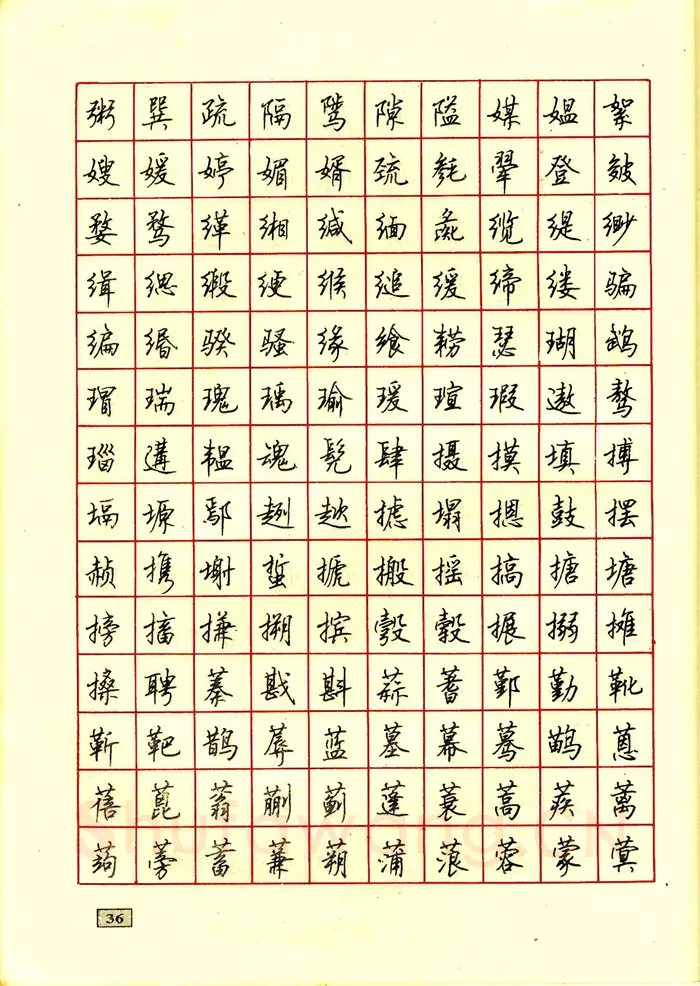 粥巽疏隔骘隙隘媒媪絮
嫂媛婷媚婿巯毵翚登皴
婺骛缂缃缄缅彘缆缇缈
缉缌缎缏缑缒缓缔缕骗
编缗骙骚缘飨耢瑟瑚鹉
瑁瑞瑰瑀瑜瑗瑄瑕遨骜
瑙遘韫魂髡肆摄摸填搏
塥塬鄢趔趑摅塌摁鼓摆
赪携塮蜇搋搬摇搞搪塘
搒搐搛搠摈彀毂搌搦摊
搡聘蓁戡斟蒜蓍鄞勤靴
靳靶鹊蓐蓝墓幕蓦鹋蒽
蓓蓖蓊蒯蓟蓬蓑蒿蒺蓠
蒟蒡蓄蒹蒴蒲蒗蓉蒙蓂
shufawang.CN
36